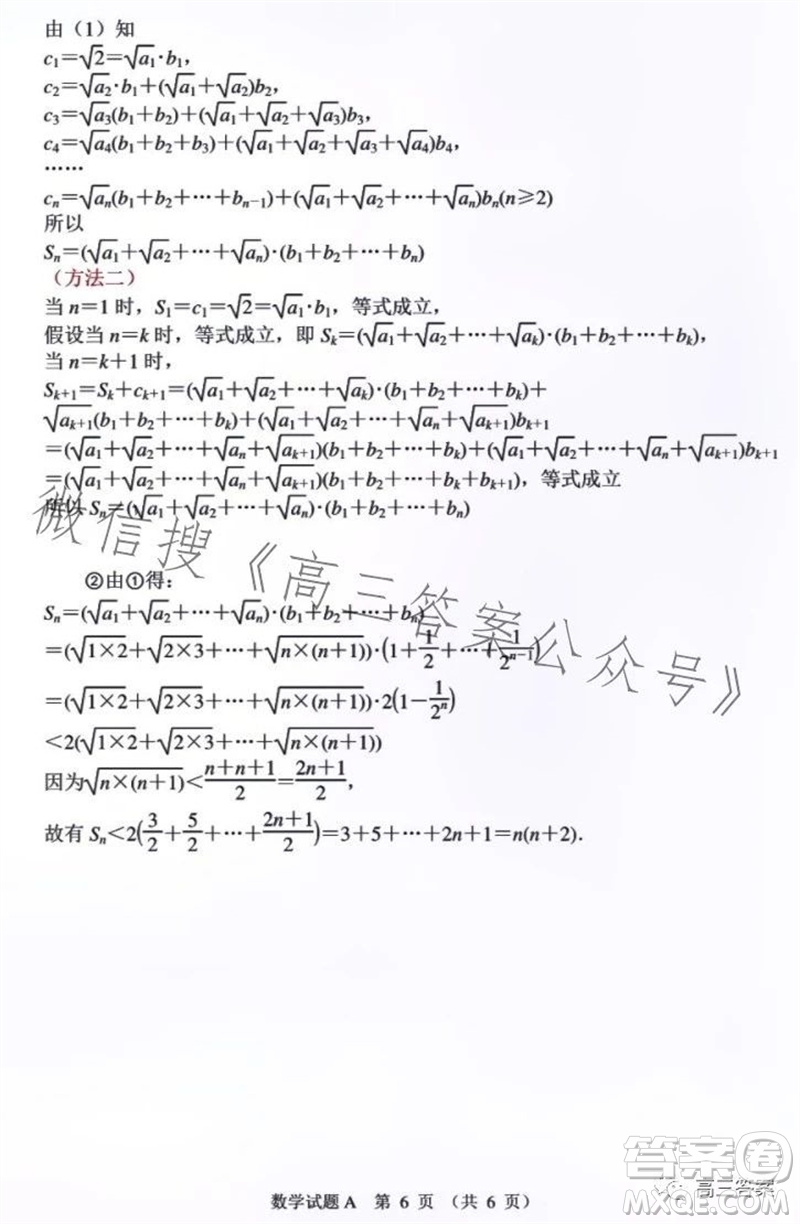 由（1）知
c₁=√2=√a₁·b₁,
c₂=√a₂·b₁+(√a₁+√a₂)b₂,
c₃=√a₃(b₁+b₂)+(√a₁+√a₂+√a₃)b₃,
c₄=√a₄(b₁+b₂+b₃)+(√a₁+√a₂+√a₃+√a₄)b₄,
……
cₙ=√aₙ(b₁+b₂+…+bₙ₋₁)+(√a₁+√a₂+…+√aₙ)bₙ(n≥2)
所以
Sₙ=(√a₁+√a₂+…+√aₙ)·(b₁+b₂+…+bₙ)
（方法二）
当 n=1 时，S₁=c₁=√2=√a₁·b₁，等式成立，
假设当 n=k 时，等式成立，即 Sₖ=(√a₁+√a₂+…+√aₖ)·(b₁+b₂+…+bₖ)，
当 n=k+1 时，
Sₖ₊₁=Sₖ+cₖ₊₁=(√a₁+√a₂+…+√aₖ)·(b₁+b₂+…+bₖ)+
√aₖ₊₁(b₁+b₂+…+bₖ)+(√a₁+√a₂+…+√aₙ+√aₖ₊₁)bₖ₊₁
=(√a₁+√a₂+…+√aₙ+√aₖ₊₁)(b₁+b₂+…+bₖ)+(√a₁+√a₂+…+√aₙ+√aₖ₊₁)bₖ₊₁
=(√a₁+√a₂+…+√aₙ+√aₖ₊₁)(b₁+b₂+…+bₖ+bₖ₊₁)，等式成立
所以 Sₙ=(√a₁+√a₂+…+√aₙ)·(b₁+b₂+…+bₙ)
微信搜《高三答案公众号》
②由①得：
Sₙ=(√a₁+√a₂+…+√aₙ)·(b₁+b₂+…+bₙ)
=(√(1×2)+√(2×3)+…+√(n×(n+1)))·(1+1/2+…+1/2ⁿ⁻¹)
=(√(1×2)+√(2×3)+…+√(n×(n+1)))·2(1−1/2ⁿ)
<2(√(1×2)+√(2×3)+…+√(n×(n+1)))
因为√(n×(n+1))<(n+n+1)/2=(2n+1)/2,
故有 Sₙ<2(3/2+5/2+…+(2n+1)/2)=3+5+…+2n+1=n(n+2).
答案圈
高三答案
MXQE.COM
数学试题 A 第 6 页 （共 6 页）